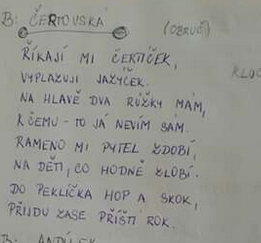 B: ČERTOVSKÁ (OBRUČ)
ŘÍKAJÍ MI ČERTÍČEK,
VYPLAZUJI JAZÝČEK.
NA HLAVĚ DVA RŮŽKY MÁM,
K ČEMU - TO JÁ NEVÍM SÁM.
RAMENO MI PYTEL ZDOBÍ,
NA DĚTI, CO HODNĚ ZLOBÍ.
DO PEKLÍČKA HOP A SKOK,
PŘIJDU ZASE PŘÍŠTÍ ROK.